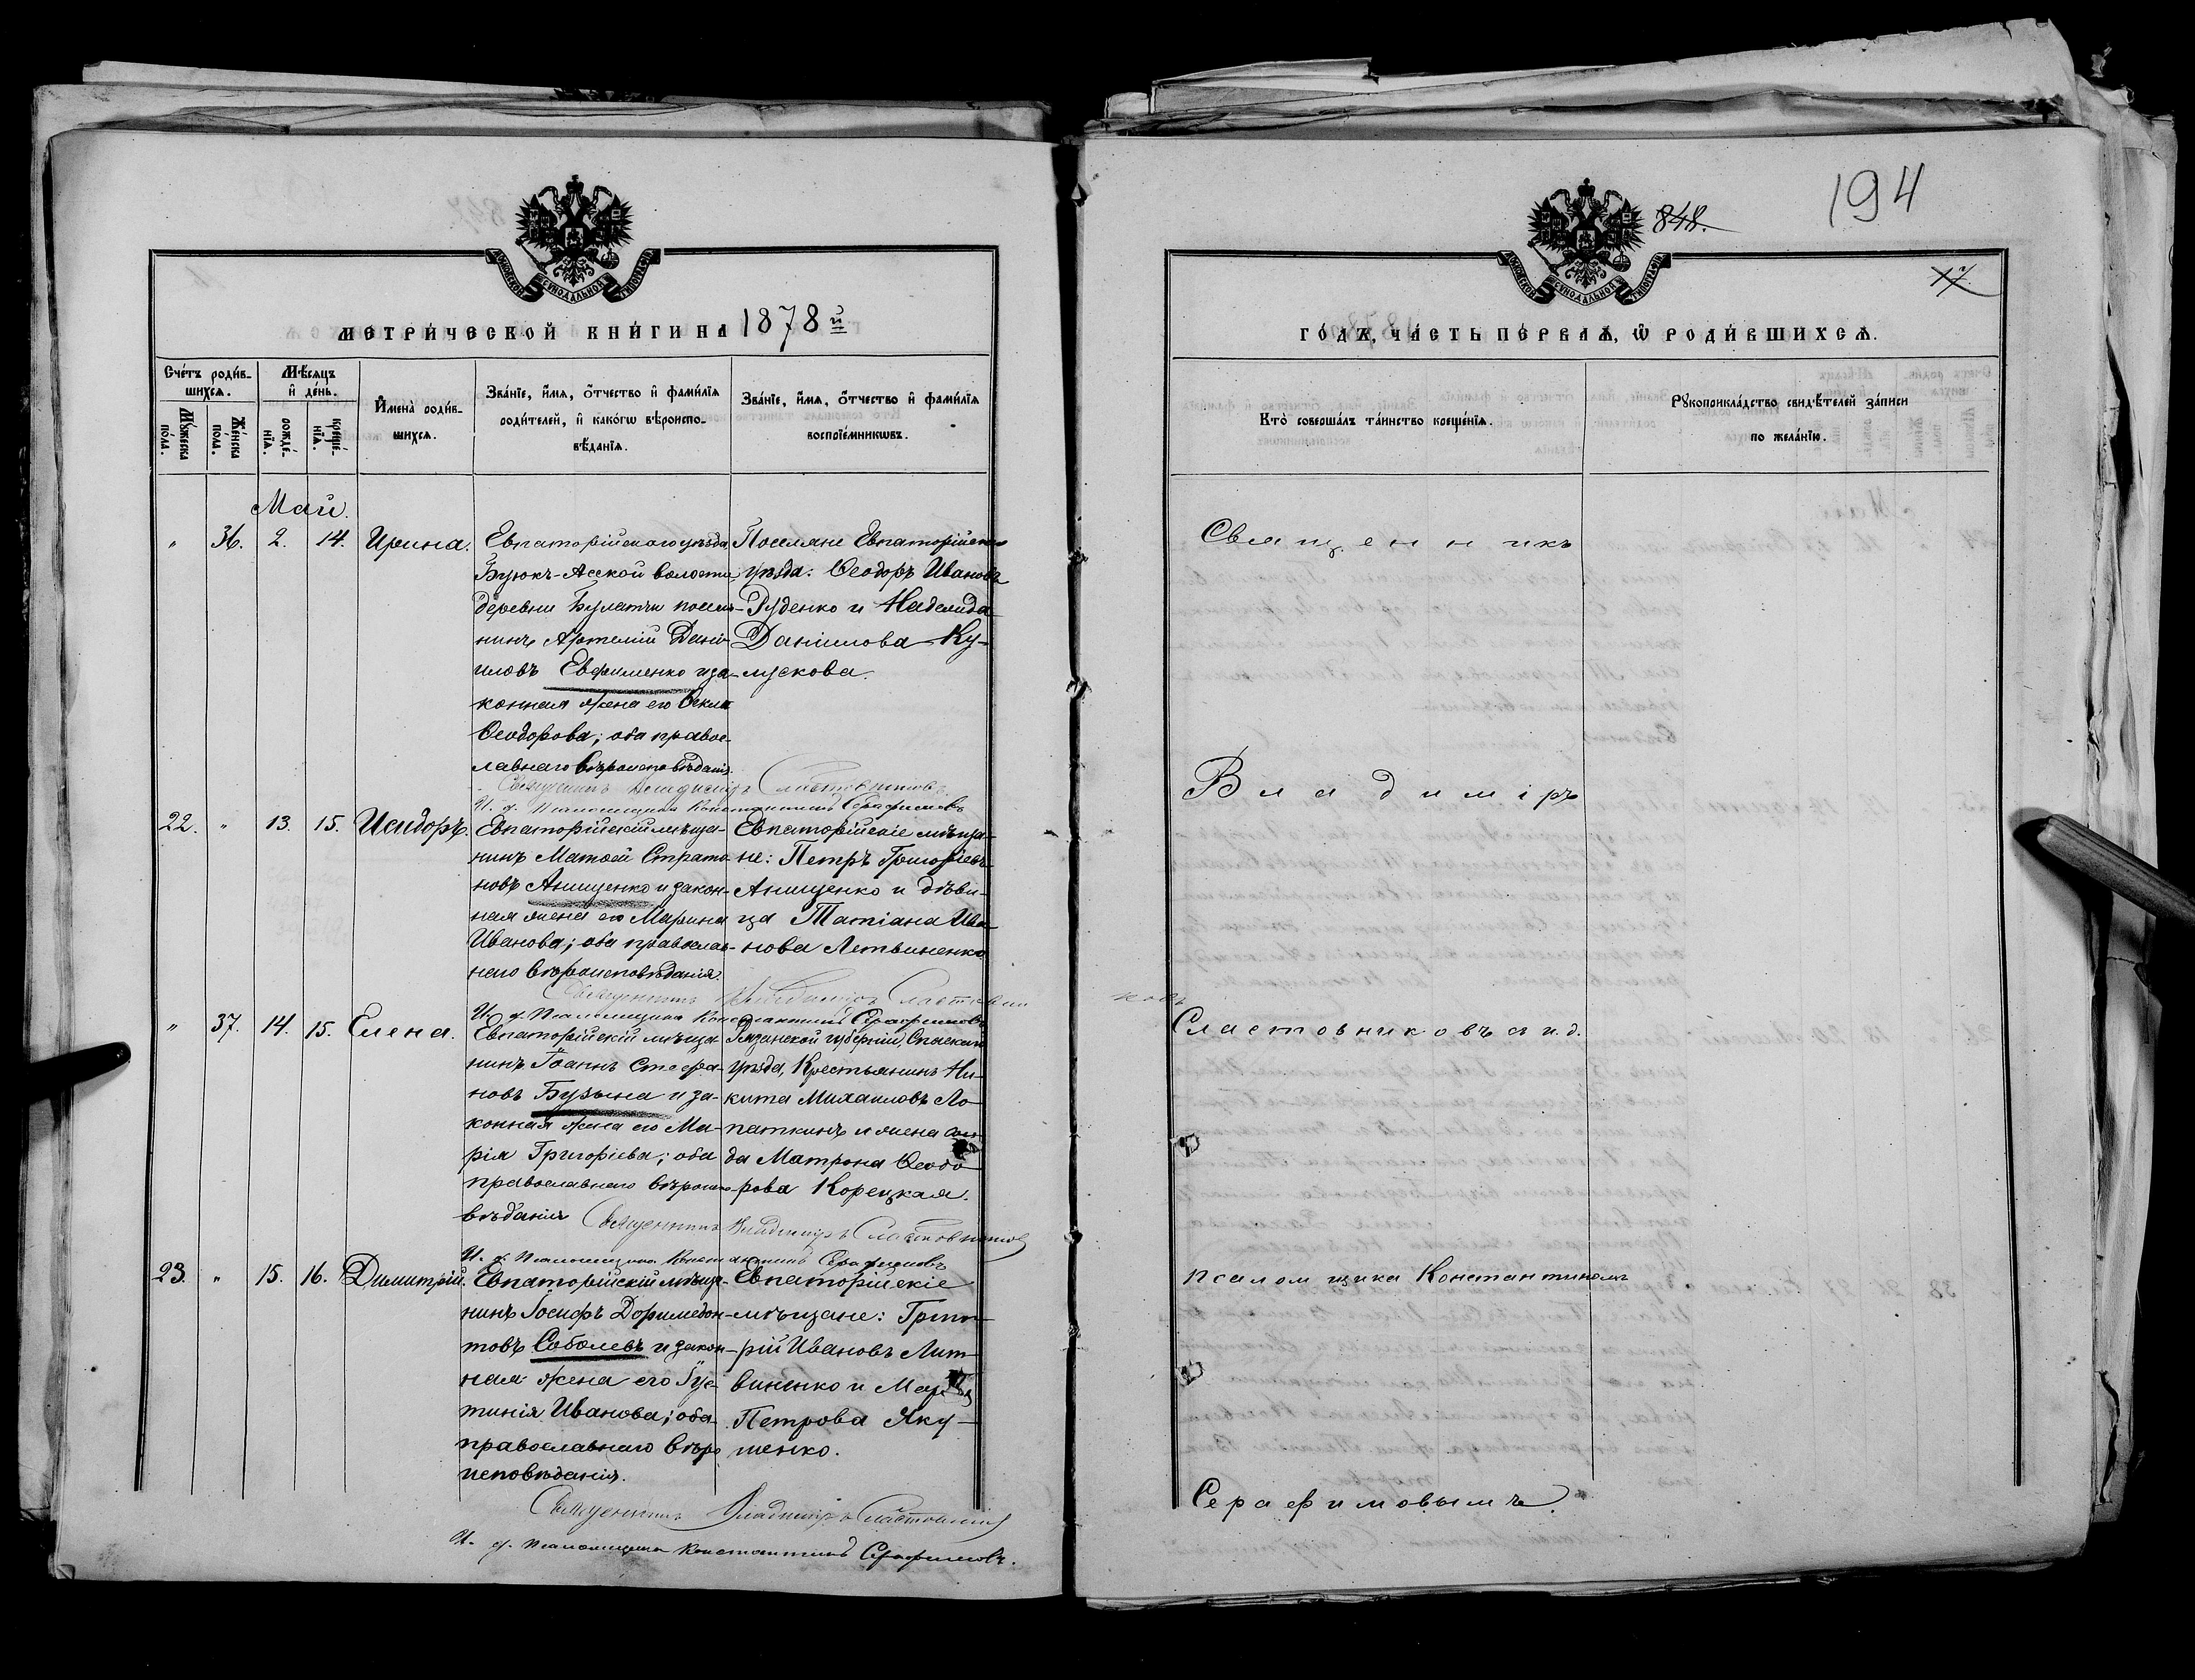 194
848.
МОСКОВСКОЙ СѴНОДАЛЬНОЙ ТИПОГРАФІИ
МЕТРИ́ЧЕСКОЙ КНИ́ГИ НА 1878й
Сче́тъ роди́в-
шихсѧ.
Мѣ́сѧцъ
и҆ де́нь.
Мꙋ́жеска по́ла.
Же́нска по́ла.
рожде́-
нїѧ.
креще́-
нїѧ.
И҆мена̀ роди́в-
шихсѧ.
Зва́нїе, и҆́мѧ, ѻ҆́тчество и҆ фами́лїѧ
роди́телей, и҆ како́гѡ вѣроиспо-
вѣ́данїѧ.
Зва́нїе, и҆́мѧ, ѻ҆́тчество и҆ фами́лїѧ
воспрїе́мникѡвъ.
Май.
" 36. 2. 14. Ирина.
Евпаторійскаго уѣзда,
Бузюкъ-Асской волости
деревни Булатчи посел-
нинъ Артемій Дані-
иловъ Евфименко и за-
конная жена его Ѳекла
Ѳеодорова; оба правос-
лавнаго вѣроисповѣданія.
Поселяне Евпаторійскаго
уѣзда: Ѳеодоръ Ивановъ
Руденко и Надежда
Даніилова Ку-
лускова.
Священникъ Владиміръ Сластовниковъ
И. д. Псаломщика Константинъ Серафимовъ
22. " 13. 15. Исидоръ.
Евпаторійскій мѣща-
нинъ Матѳей Страто-
новъ Анищенко и закон-
ная жена его Марина
Иванова; оба православ-
наго вѣроисповѣданія.
Евпаторійскіе мѣща-
не: Петръ Григорьевъ
Анищенко и дѣви-
ца Татіана Ива-
нова Летвиненко
Священникъ Владиміръ Сластовниковъ
И. д. Псаломщика Константинъ Серафимовъ
" 37. 14. 15. Елена.
Евпаторійскій мѣща
нинъ Іоаннъ Стефа-
новъ Бузына и за-
конная жена его Ма-
рія Григорьева; оба
православнаго вѣроиспо
вѣданія
Рязанской губерніи, Спаскаго
уѣзда, Крестьянинъ Ни-
кита Михаиловъ Ло-
паткинъ и жена
да Матрона Ѳеодо
рова Корецкая.
Священникъ Владиміръ Сластовниковъ
И. д. Псаломщика Константинъ Серафимовъ
23. " 15. 16. Димитрій.
Евпаторійскій мѣща-
нинъ Іосифъ Доримедон-
товъ Соболевъ и закон-
ная жена его Іус-
тинія Иванова; оба
православнаго вѣро
исповѣданія.
Евпаторійскіе
мѣщане: Григо-
рій Ивановъ Лит-
виненко и
Петрова Яку-
шенко.
Священникъ Владиміръ Сластовниковъ
И. д. Псаломщика Константинъ Серафимовъ.
МОСКОВСКОЙ СѴНОДАЛЬНОЙ ТИПОГРАФІИ
ГО́ДЪ, ЧА́СТЬ ПЕ́РВАѦ, Ѡ҆ РОДИ́ВШИХСѦ.
Кто̀ соверша́лъ та́инство креще́нїѧ.
Рꙋкоприкла́дство свидѣ́телей за́писи
по жела́нїю.
Священникъ
Владиміръ
Сластовниковъ съ и. д.
псаломщика Константиномъ
Серафимовымъ.